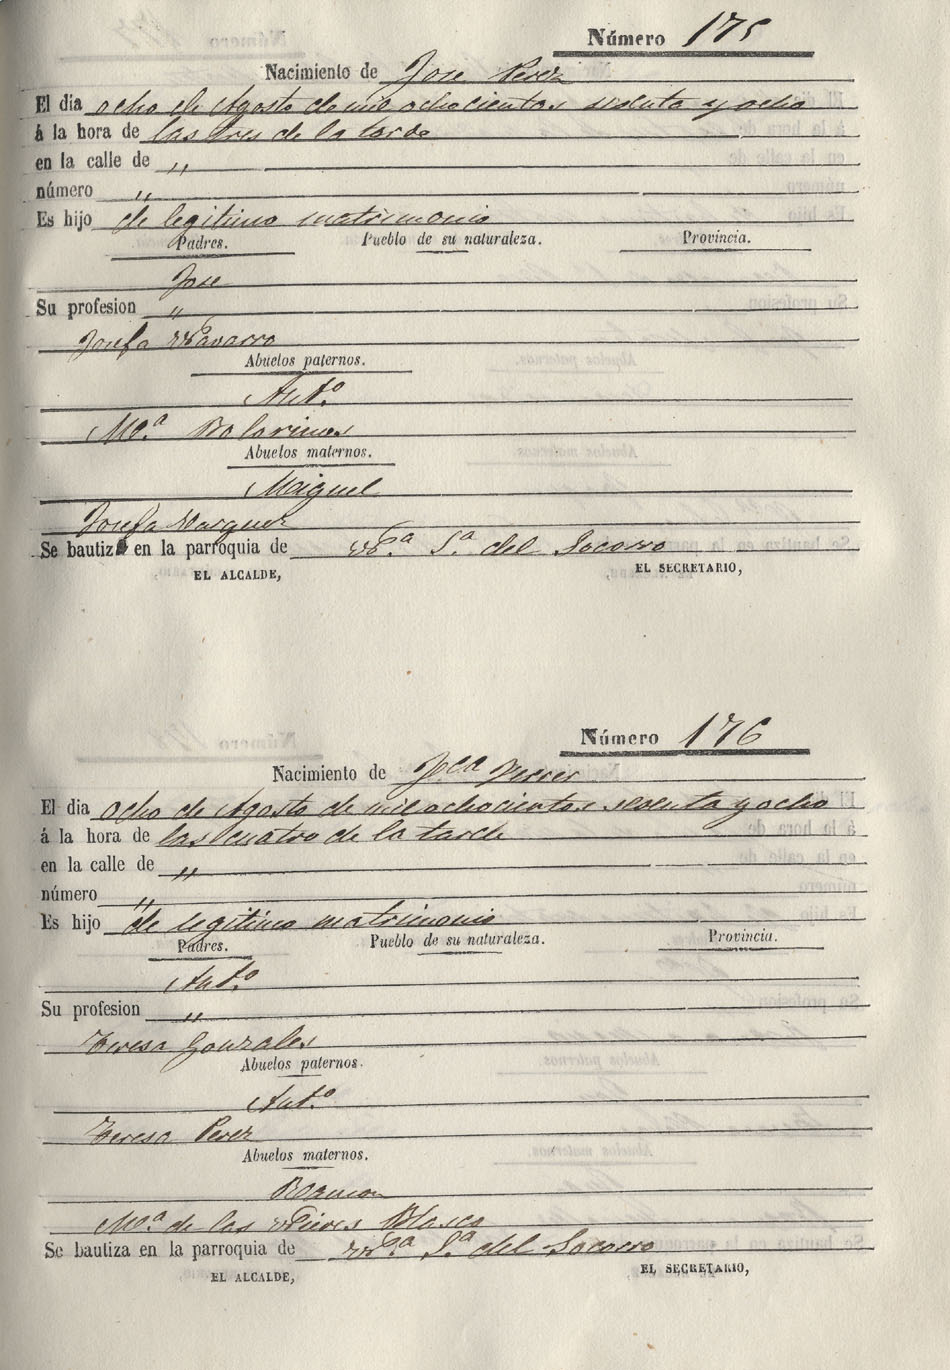 Número 175
Nacimiento de Jose Perez
El dia ocho de Agosto de mil ochocientos sesenta y ocho
á la hora de las tres de la tarde
en la calle de „
número „
Es hijo de legitimo matrimonio
Padres. Pueblo de su naturaleza. Provincia.
Jose
Su profesion „
Josefa Navarro
Abuelos paternos.
Ant.º
M.ª Bolarinos
Abuelos maternos.
Miguel
Josefa Marquez
Se bautizó en la parroquia de N.ª S.ª del Socorro
EL ALCALDE, EL SECRETARIO,
Número 176
Nacimiento de Fca Ferrer
El dia ocho de Agosto de mil ochocientos sesenta y ocho
á la hora de las cuatro de la tarde
en la calle de „
número „
Es hijo de legitimo matrimonio
Padres. Pueblo de su naturaleza. Provincia.
Ant.º
Su profesion „
Teresa Gonzales
Abuelos paternos.
Ant.º
Teresa Perez
Abuelos maternos.
Ramon
M.ª de las Nieves Blasco
Se bautiza en la parroquia de N.ª S.ª del Socorro
EL ALCALDE, EL SECRETARIO,